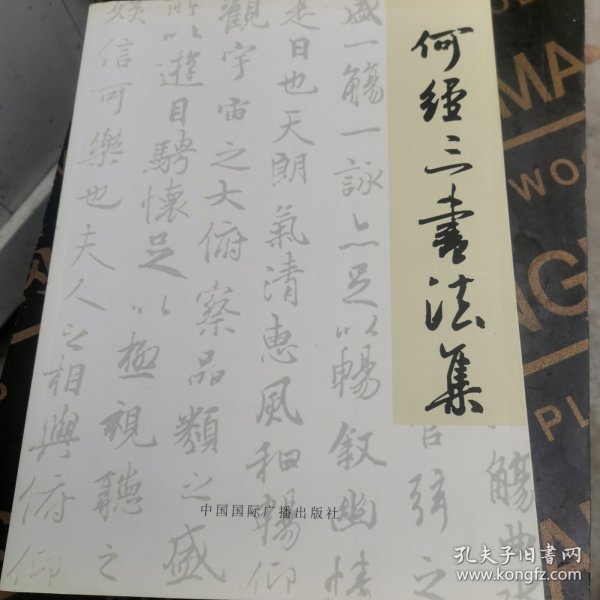 何經三書法集
觴曲水
管弦之
盛一觴一詠亦足以暢敘幽情
是日也天朗氣清惠風和暢仰
觀宇宙之大俯察品類之盛
所以遊目騁懷足以極視聽之
娛信可樂也夫人之相與俯仰
中国国际广播出版社
MA
WO
NG
PL
孔夫子旧书网
www.kongfz.com